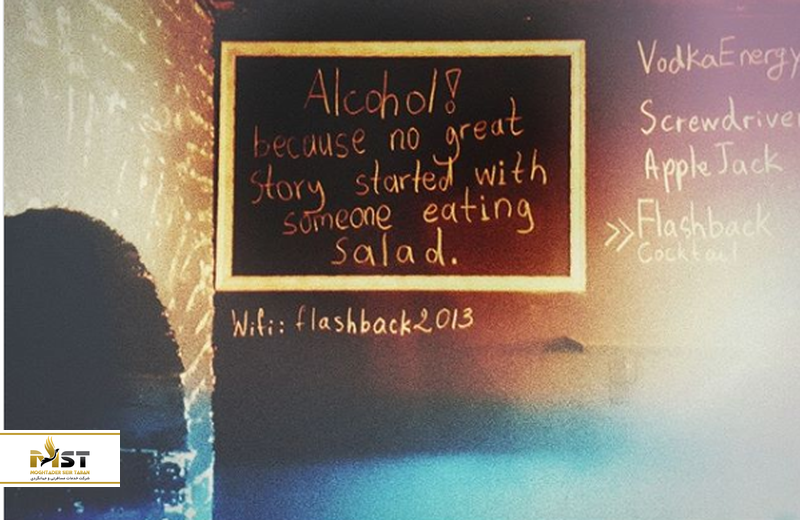 Alcohol!
because no great
story started with
someone eating
salad.
Wifi: flashback2013
VodkaEnergy
Screwdriver
Apple Jack
>>Flashback
Cocktail
MST
MOGHTADER SEIR TABAN
شرکت خدمات مسافرتی و جهانگردی